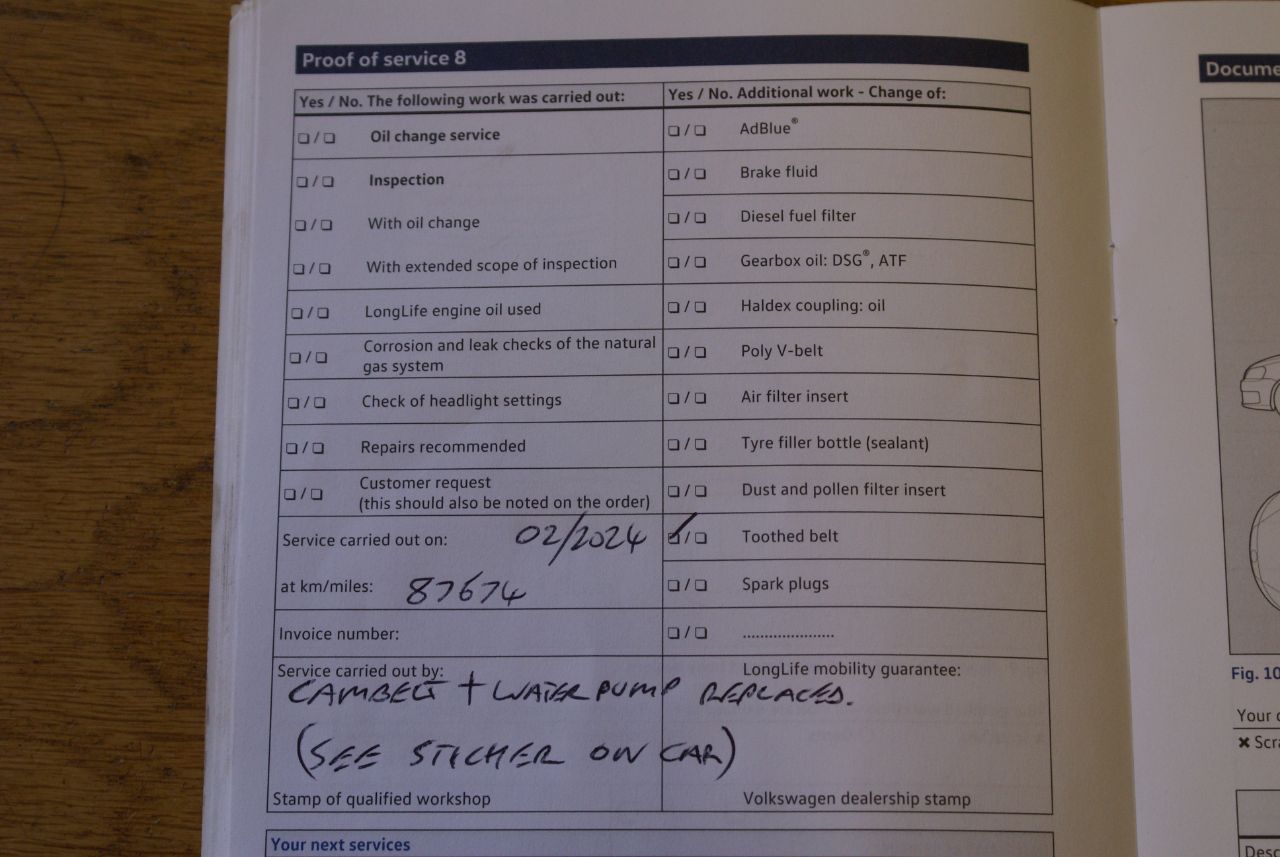 Proof of service 8
Yes / No. The following work was carried out:
❑ / ❑ Oil change service
❑ / ❑ Inspection
❑ / ❑ With oil change
❑ / ❑ With extended scope of inspection
❑ / ❑ LongLife engine oil used
❑ / ❑ Corrosion and leak checks of the natural
gas system
❑ / ❑ Check of headlight settings
❑ / ❑ Repairs recommended
❑ / ❑ Customer request
(this should also be noted on the order)
Service carried out on: 02/2024
at km/miles: 87674
Invoice number:
Yes / No. Additional work - Change of:
❑ / ❑ AdBlue®
❑ / ❑ Brake fluid
❑ / ❑ Diesel fuel filter
❑ / ❑ Gearbox oil: DSG®, ATF
❑ / ❑ Haldex coupling: oil
❑ / ❑ Poly V-belt
❑ / ❑ Air filter insert
❑ / ❑ Tyre filler bottle (sealant)
❑ / ❑ Dust and pollen filter insert
✓ / ❑ Toothed belt
❑ / ❑ Spark plugs
❑ / ❑ ......................
Service carried out by: LongLife mobility guarantee:
CAMBELT + WATER PUMP REPLACED.
(SEE STICKER ON CAR)
Stamp of qualified workshop Volkswagen dealership stamp
Your next services
Fig. 10
Your